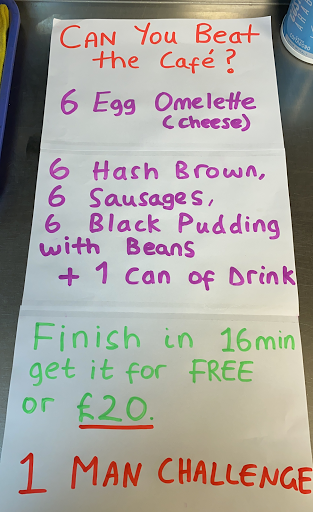 CAN You Beat
the Café?
6 Egg Omelette
(cheese)
6 Hash Brown,
6 Sausages,
6 Black Pudding
with Beans
+ 1 Can of Drink
Finish in 16min
get it for FREE
or £20.
1 MAN CHALLENGE